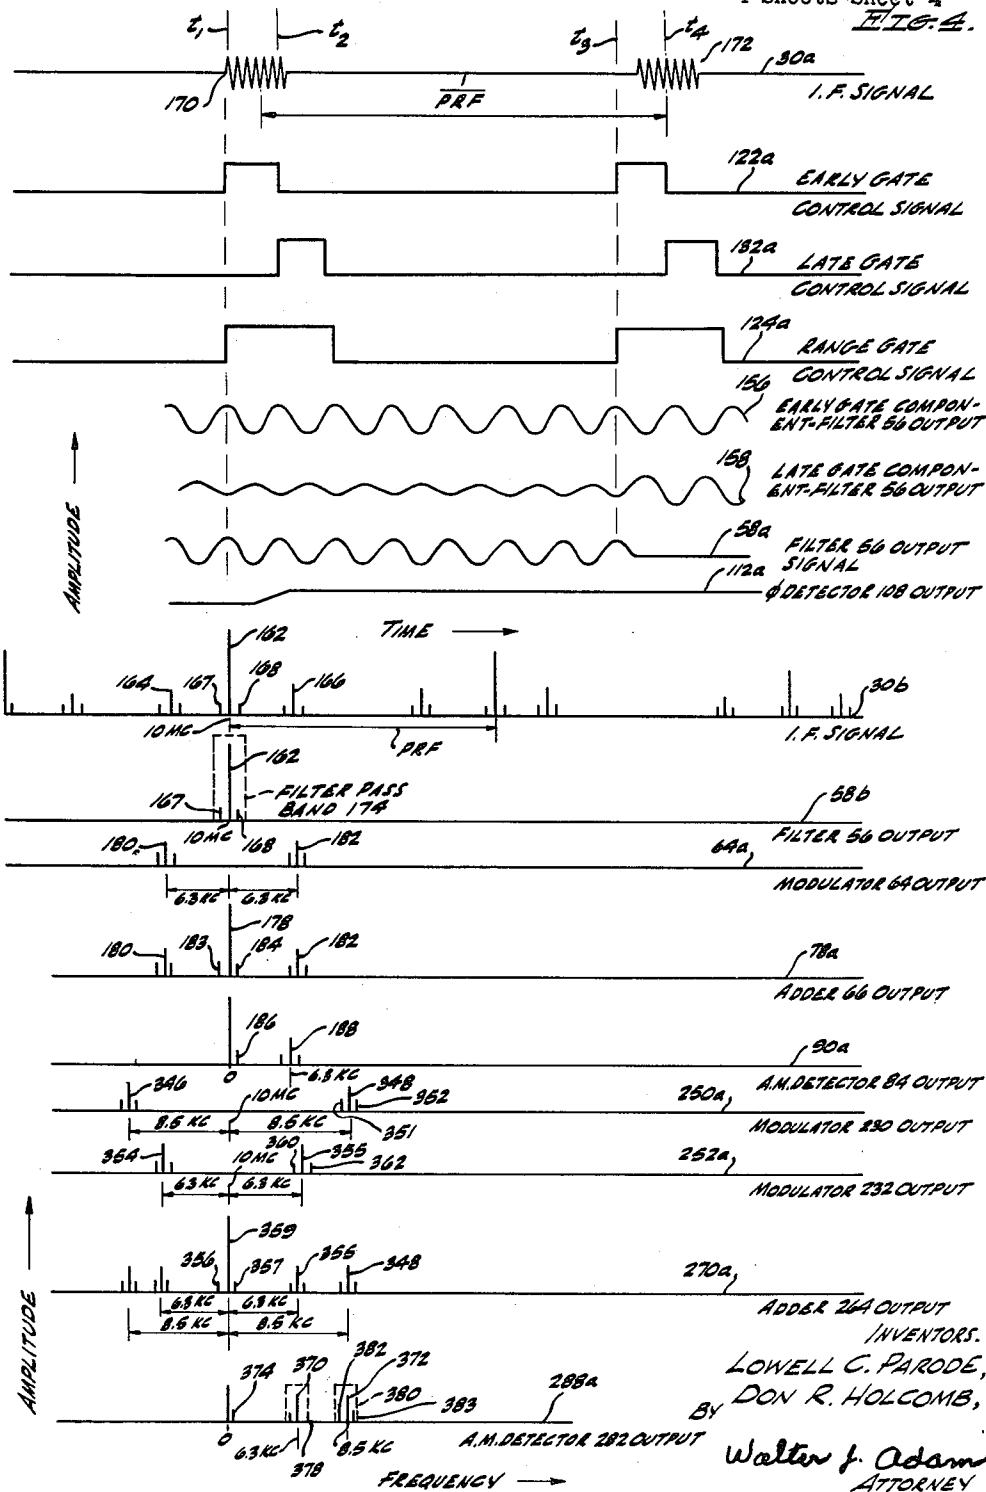 4 Sheets-Sheet 4
FIG. 4.
t1 t2 t3 t4 172 30a
170 PRF I.F. SIGNAL
122a EARLY GATE
CONTROL SIGNAL
132a LATE GATE
CONTROL SIGNAL
124a RANGE GATE
CONTROL SIGNAL
156 EARLY GATE COMPON-
ENT-FILTER 56 OUTPUT
158 LATE GATE COMPON-
ENT-FILTER 56 OUTPUT
AMPLITUDE
58a FILTER 56 OUTPUT
SIGNAL
112a φ DETECTOR 108 OUTPUT
TIME
162
164 167 168 166 30b
10 MC PRF I.F. SIGNAL
162
167 FILTER PASS
BAND 174 58b
10 MC 168 FILTER 56 OUTPUT
180 182 64a
6.3 KC 6.3 KC MODULATOR 64 OUTPUT
178
180 183 184 182 78a
ADDER 66 OUTPUT
186 188 90a
0 6.3 KC A.M. DETECTOR 84 OUTPUT
346 10 MC 348 352 250a
8.5 KC 8.5 KC 351 MODULATOR 230 OUTPUT
354 10 MC 360 355 362 252a
6.3 KC 6.3 KC MODULATOR 232 OUTPUT
359
356 357 355 348 270a
6.3 KC 6.3 KC ADDER 264 OUTPUT
8.5 KC 8.5 KC
AMPLITUDE
INVENTORS.
LOWELL C. PARODE,
DON R. HOLCOMB,
BY
374 370 382 372 380 383 288a
0 6.3 KC 378 8.5 KC A.M. DETECTOR 282 OUTPUT
Walter J. Adam
ATTORNEY
FREQUENCY